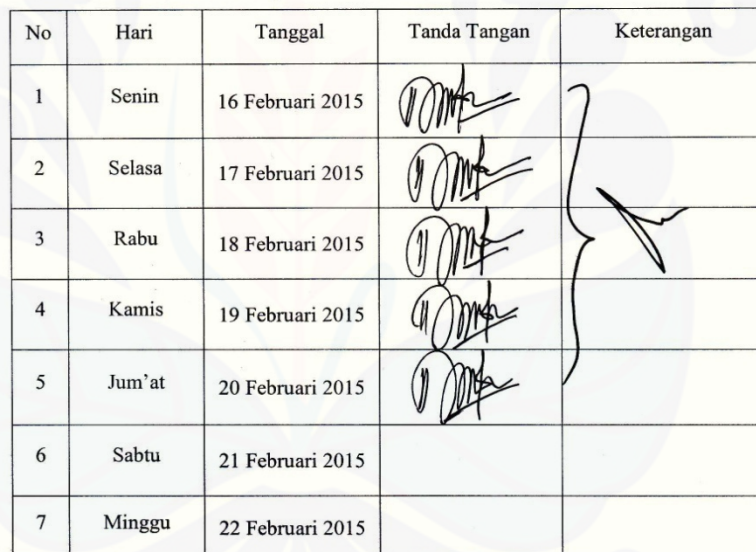 No Hari Tanggal Tanda Tangan Keterangan
1 Senin 16 Februari 2015
2 Selasa 17 Februari 2015
3 Rabu 18 Februari 2015
4 Kamis 19 Februari 2015
5 Jum'at 20 Februari 2015
6 Sabtu 21 Februari 2015
7 Minggu 22 Februari 2015